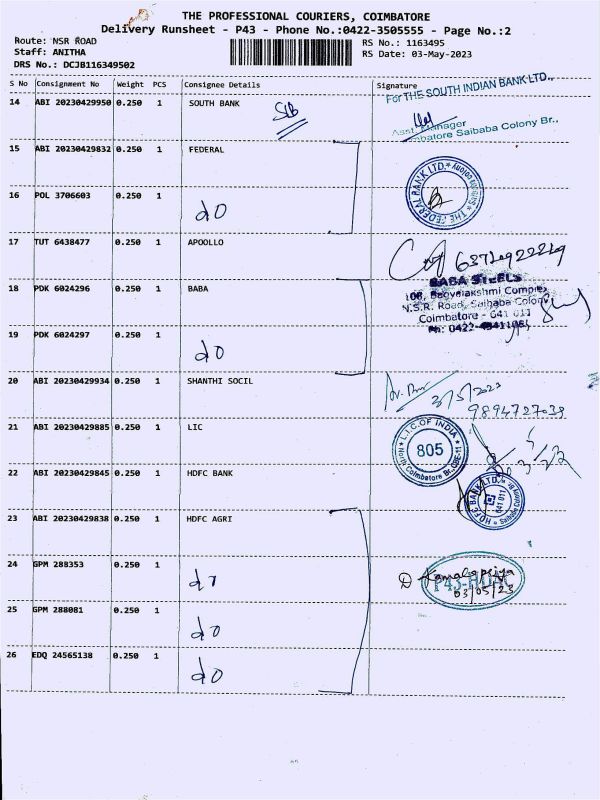 THE PROFESSIONAL COURIERS, COIMBATORE
Delivery Runsheet - P43 - Phone No.:0422-3505555 - Page No.:2
Route: NSR ROAD
RS No.: 1163495
Staff: ANITHA
RS Date: 03-May-2023
DRS No.: DCJB116349502
S No Consignment No Weight PCS Consignee Details Signature
14 ABI 20230429950 0.250 1 SOUTH BANK SIB
For THE SOUTH INDIAN BANK LTD.,
Asst. Manager
Coimbatore Saibaba Colony Br.,
15 ABI 20230429832 0.250 1 FEDERAL
THE FEDERAL BANK LTD.
16 POL 3706603 0.250 1 do
17 TUT 6438477 0.250 1 APOOLLO
18 PDK 6024296 0.250 1 BABA
BABA STEELS
108, Bagyalakshmi Complex
N.S.R. Road, Saibaba Colony
Coimbatore - 641 011
19 PDK 6024297 0.250 1 do
20 ABI 20230429934 0.250 1 SHANTHI SOCIL
3/5/2023
9894727039
21 ABI 20230429885 0.250 1 LIC
L.I.C.OF INDIA
805
North Coimbatore Br. CBE-11
22 ABI 20230429845 0.250 1 HDFC BANK
HDFC BANK LTD.
641 011
23 ABI 20230429838 0.250 1 HDFC AGRI
24 GPM 288353 0.250 1 do
D Kamalapriya
03/05/23
25 GPM 288081 0.250 1 do
26 EDQ 24565138 0.250 1 do